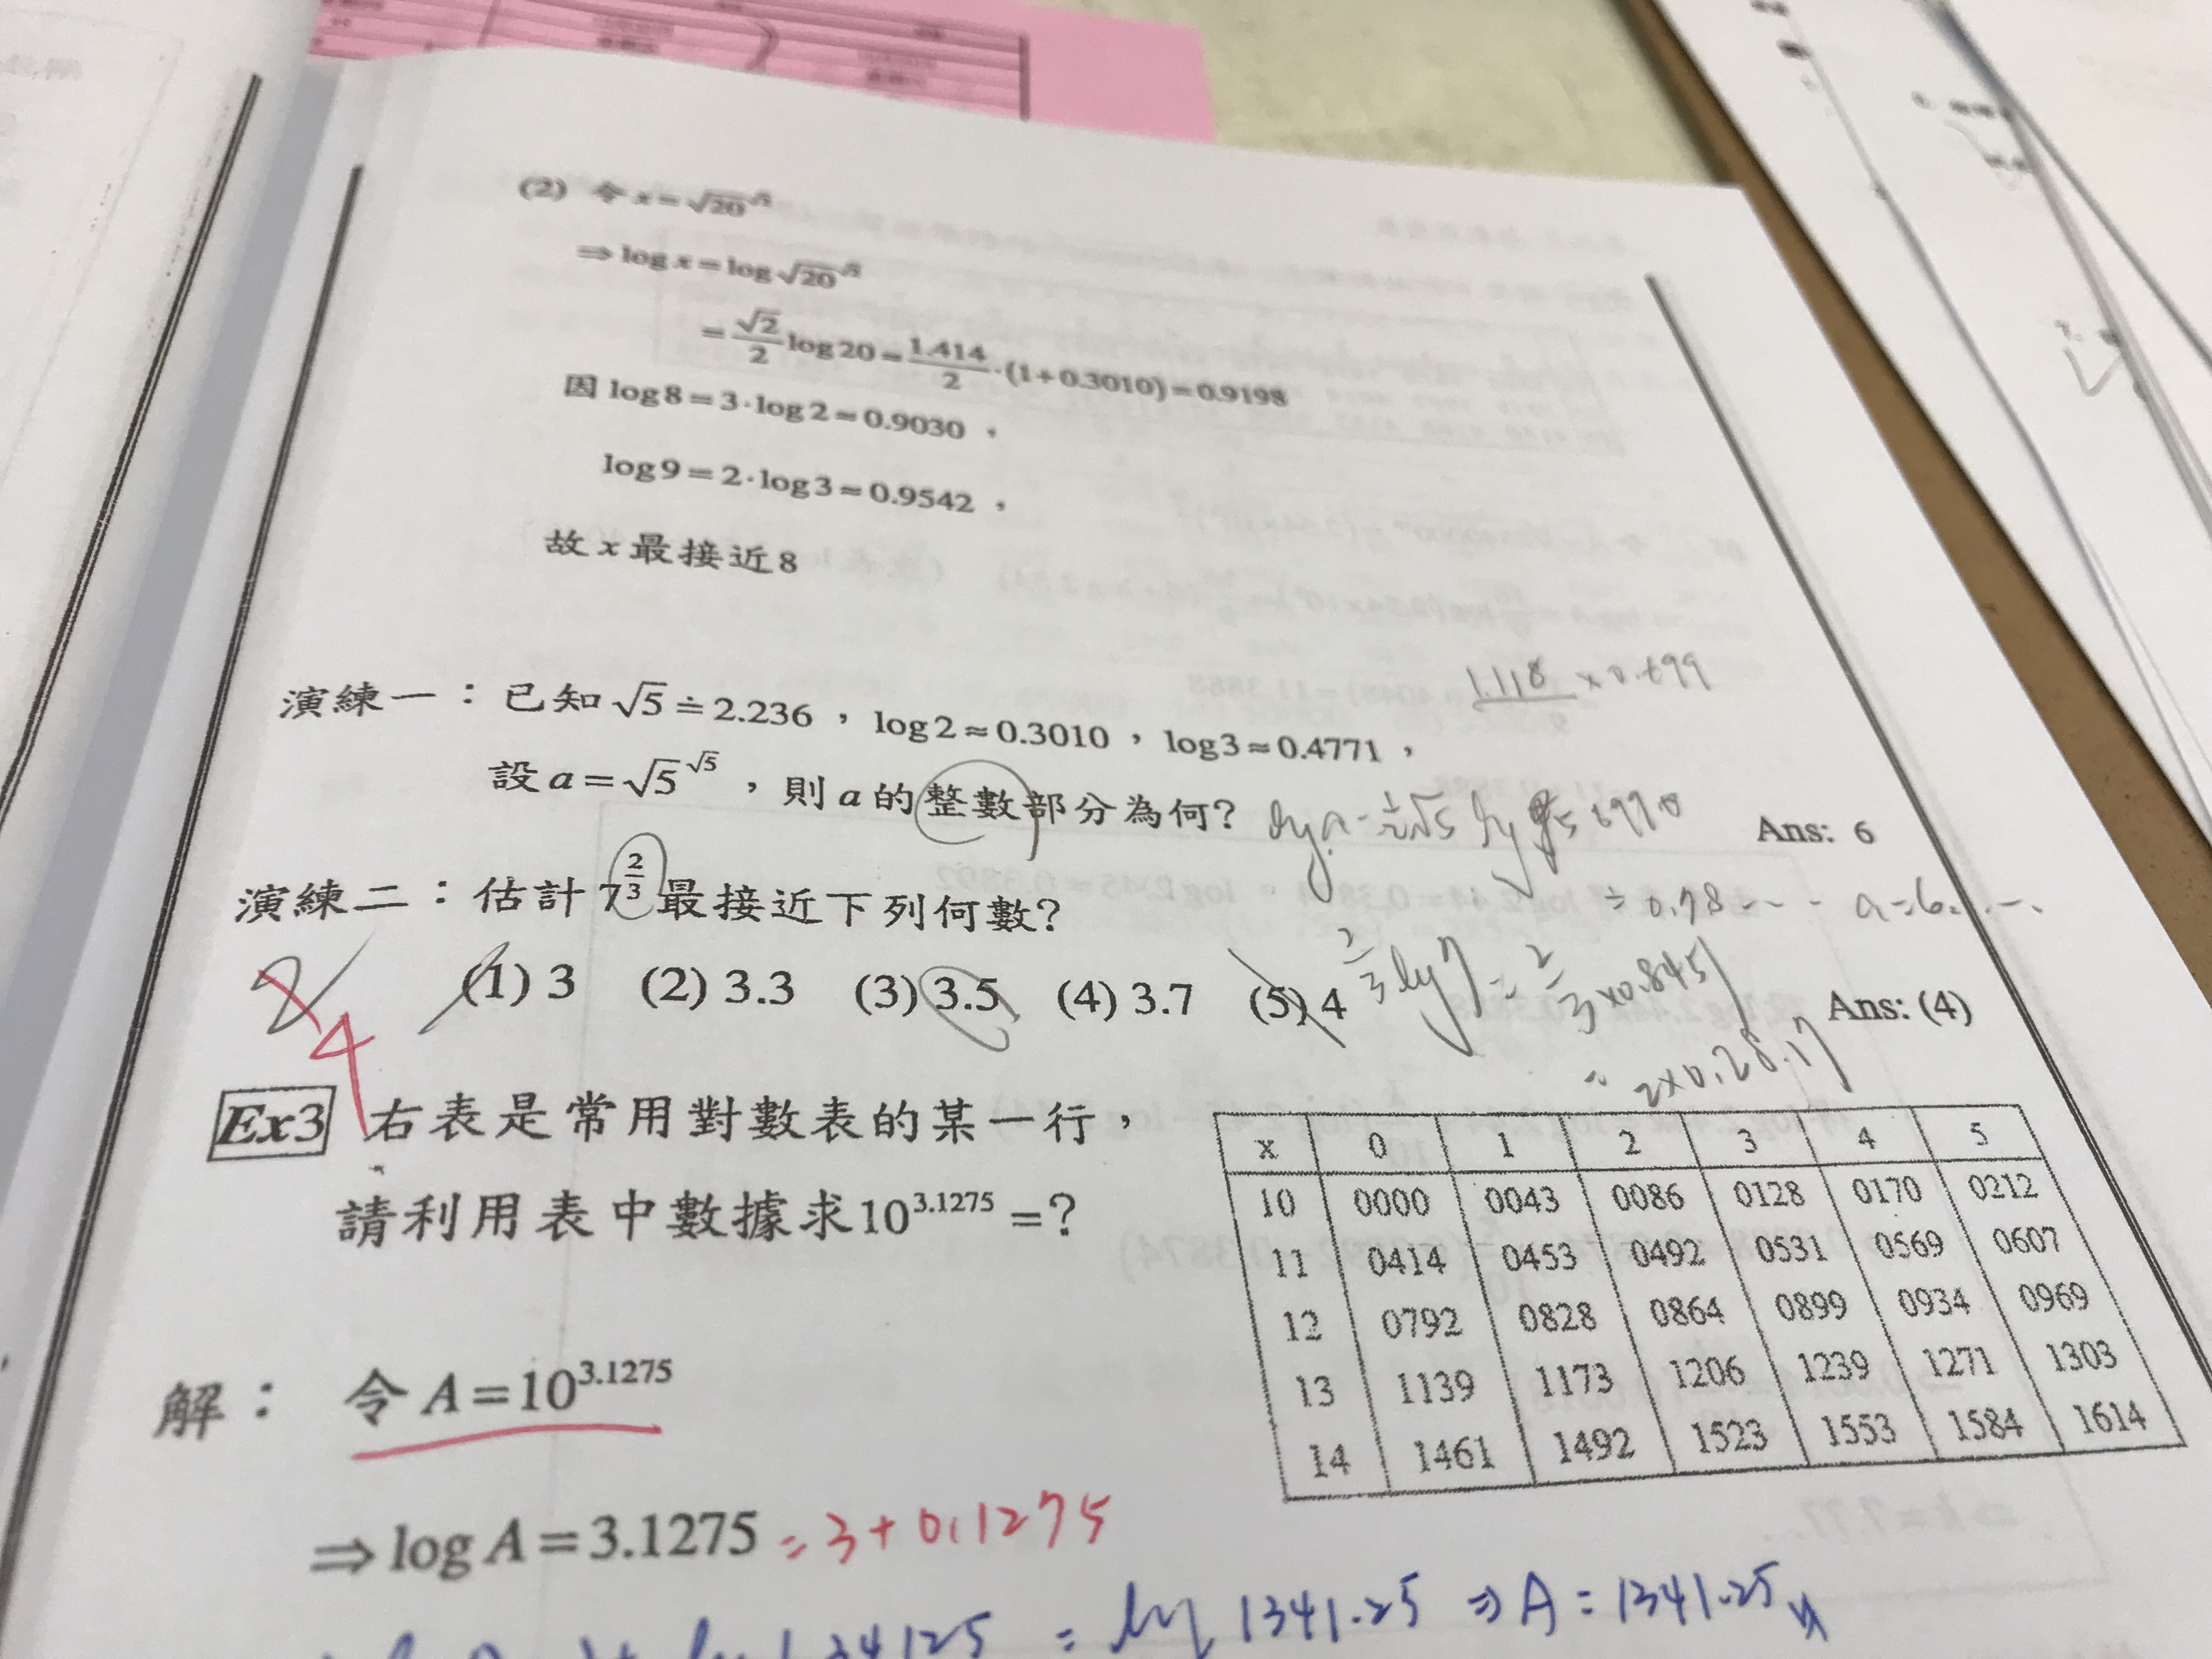 (2) 令 x = √20^√2
⇒ log x = log √20^√2
= √2/2 log 20 ≈ 1.414/2 ·(1+0.3010) = 0.9198
因 log 8 = 3·log 2 ≈ 0.9030，
log 9 = 2·log 3 ≈ 0.9542，
故 x 最接近 8
1.118 × 0.699
演練一：已知 √5 ≐ 2.236，log 2 ≈ 0.3010，log 3 ≈ 0.4771，
設 a = √5^√5，則 a 的整數部分為何？
Ans: 6
≐ 0.78--- a=6.....
演練二：估計 7^(2/3) 最接近下列何數？
(1) 3 (2) 3.3 (3) 3.5 (4) 3.7 (5) 4
2/3 log7 = 2/3 × 0.8451
Ans: (4)
= 2×0.2817
4
Ex3 右表是常用對數表的某一行，
請利用表中數據求10^3.1275 =？
x 0 1 2 3 4 5
10 0000 0043 0086 0128 0170 0212
11 0414 0453 0492 0531 0569 0607
12 0792 0828 0864 0899 0934 0969
13 1139 1173 1206 1239 1271 1303
14 1461 1492 1523 1553 1584 1614
解： 令 A = 10^3.1275
⇒ log A = 3.1275 = 3 + 0.1275
= log 1341.25 ⇒ A = 1341.25